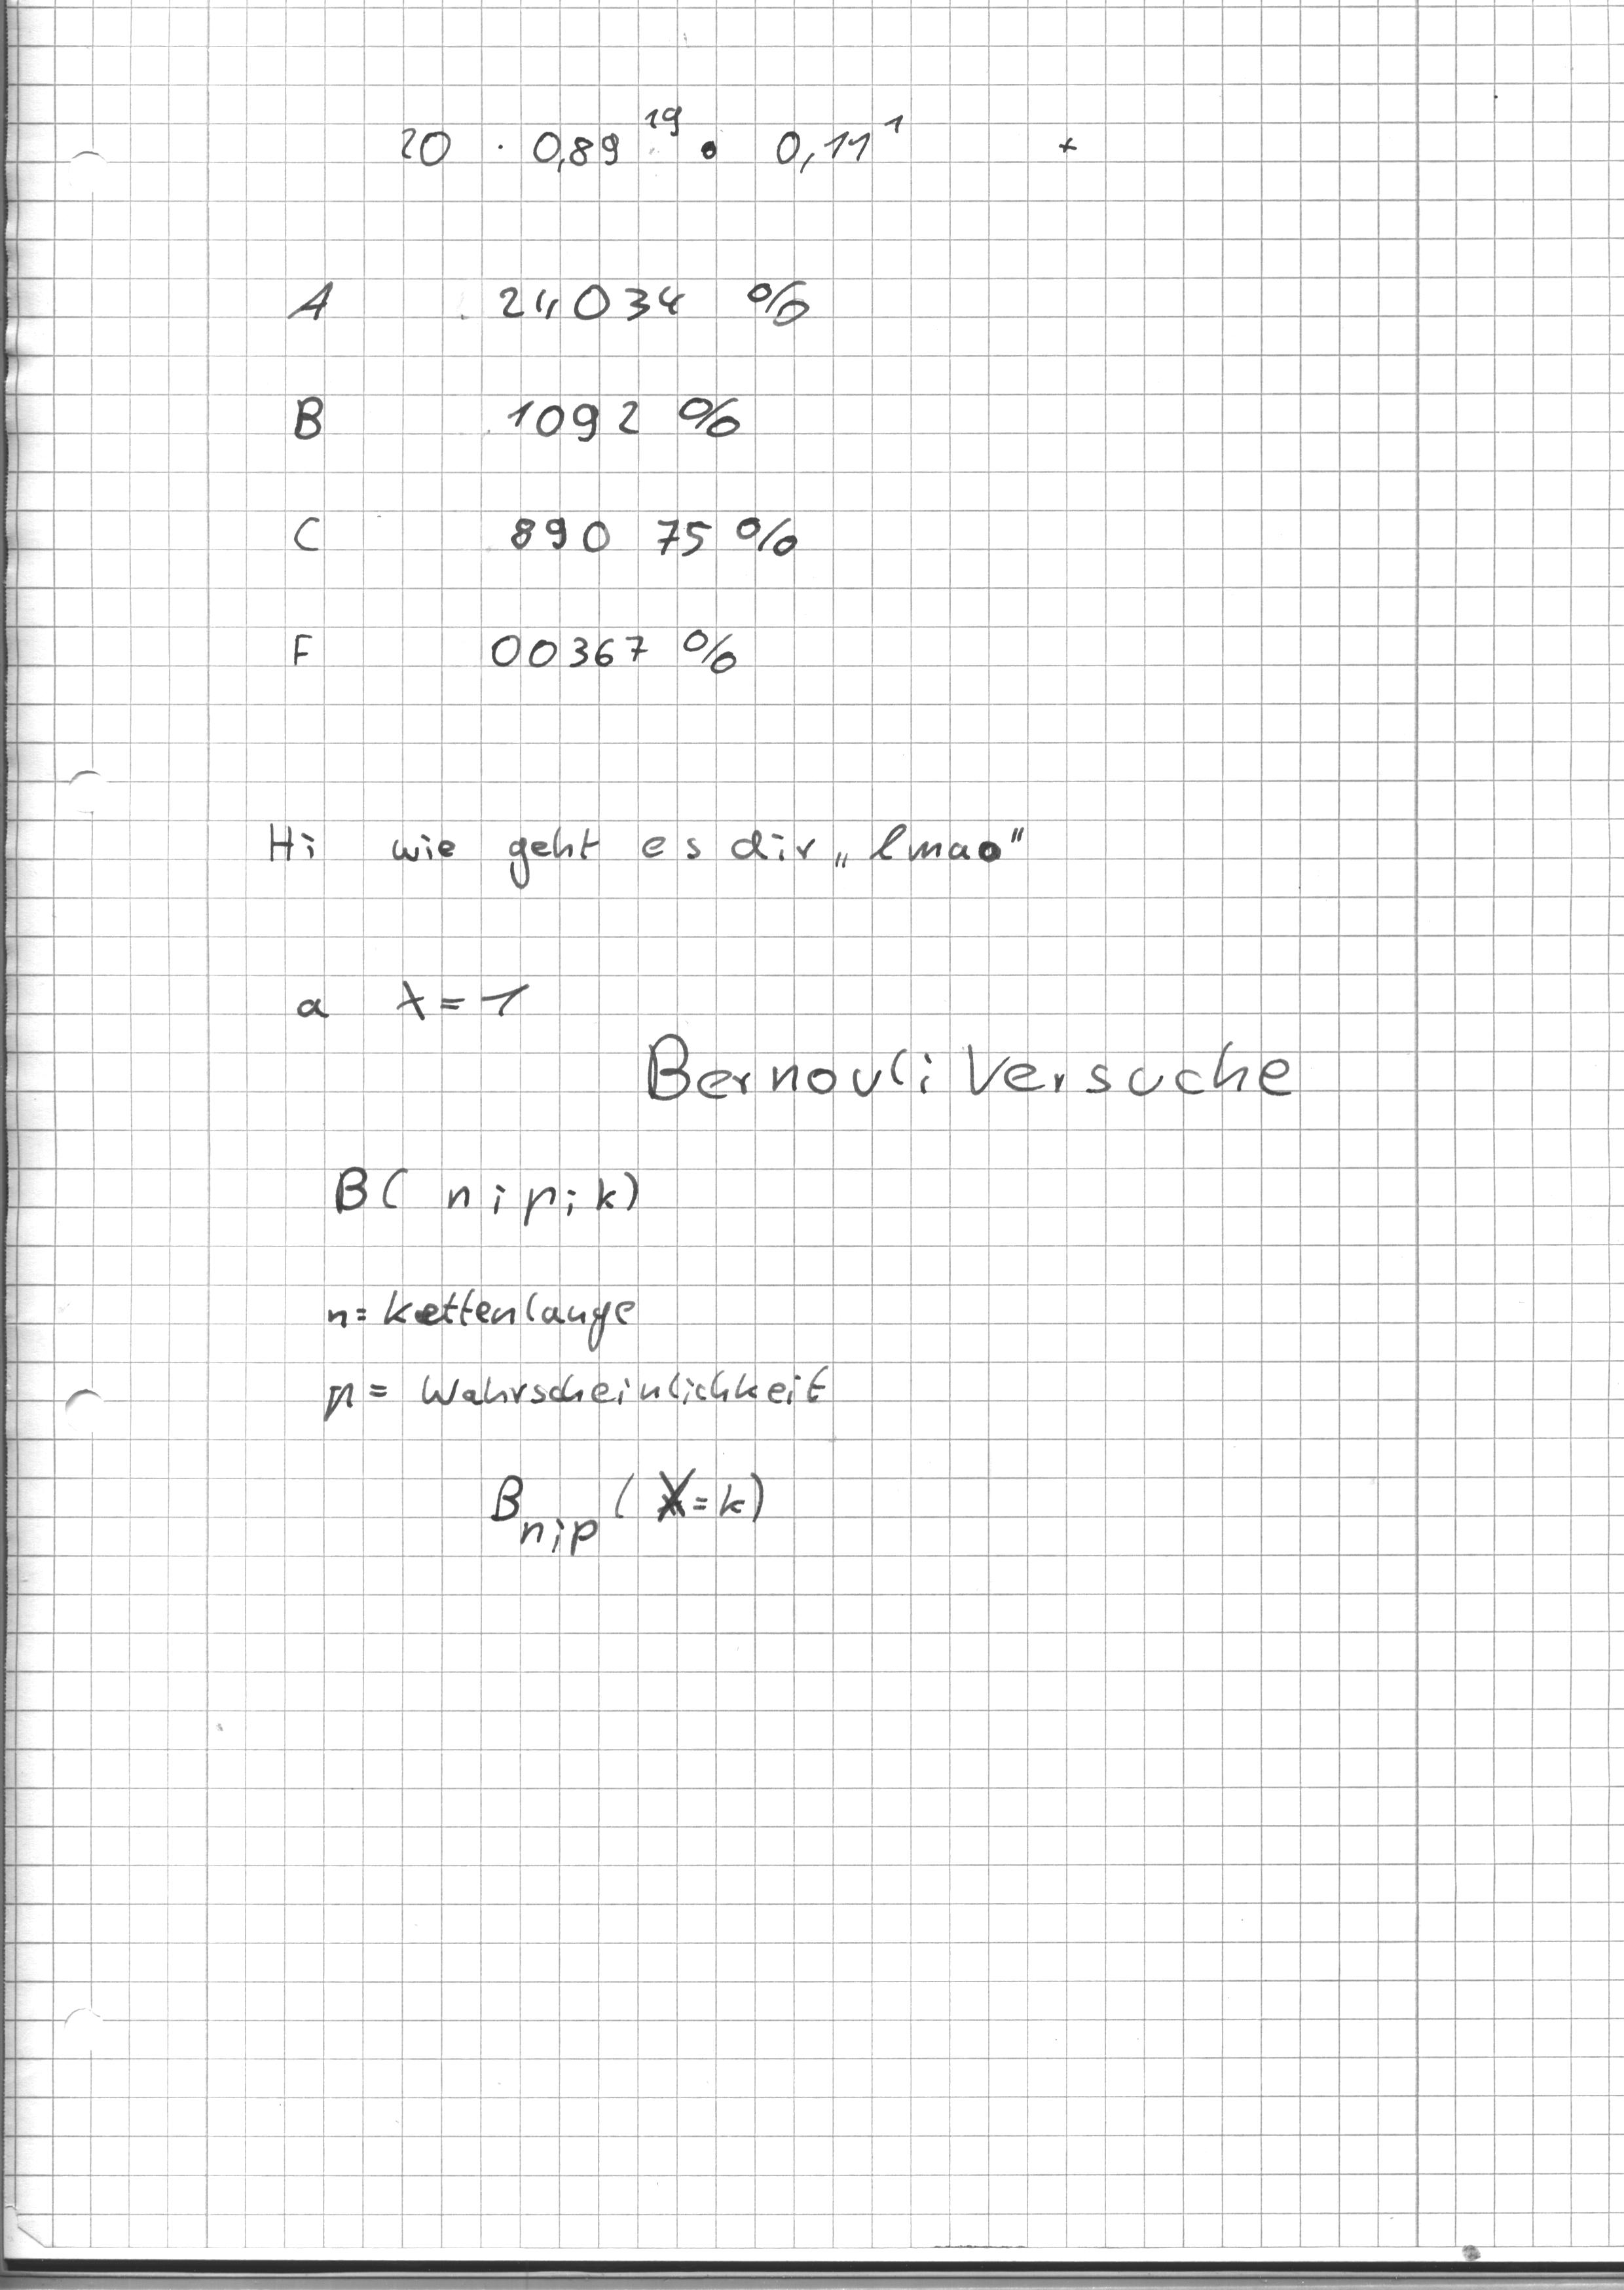 20 · 0,89¹⁹ • 0,11¹ +
A 24034 %
B 1092 %
C 890 75 %
F 00367 %
Hi wie geht es dir „lmao"
a X=1
Bernouli Versuche
B( n;p;k)
n= kettenlange
p= Wahrscheinlichkeit
B n;p (X=k)